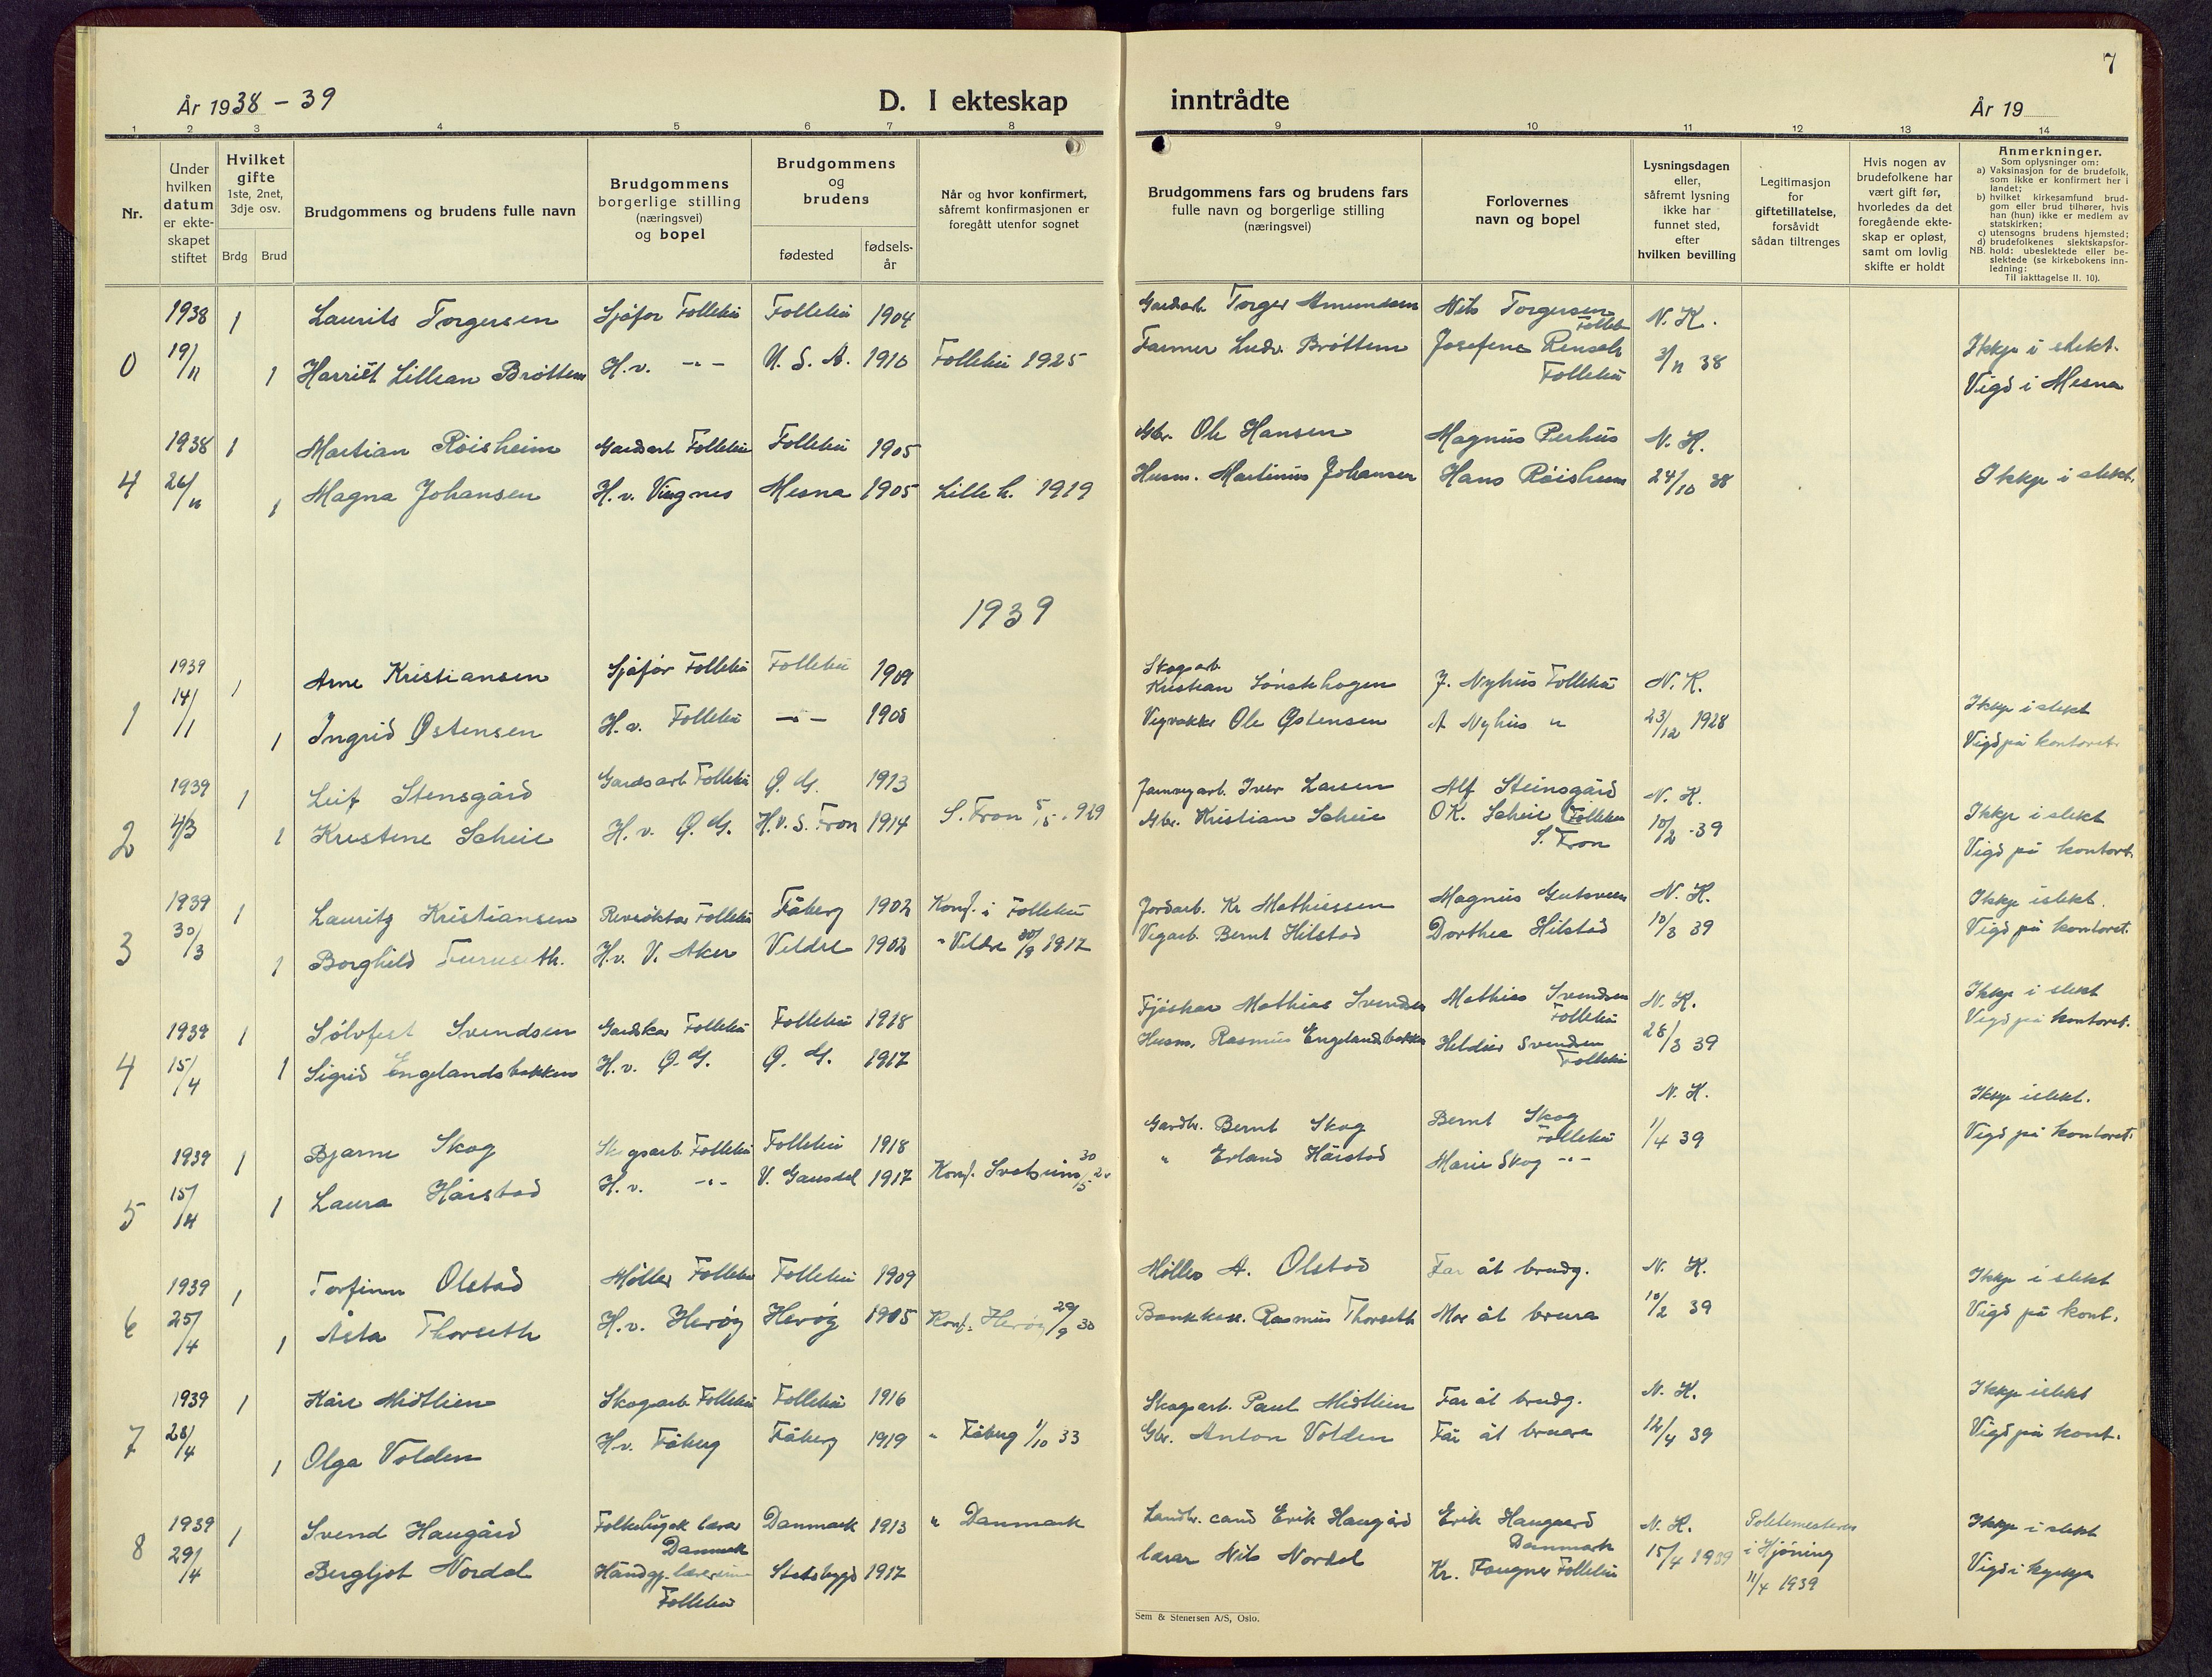 7
År 1938 - 39
D. I ekteskap inntrådte
År 19
1 2 3 4 5 6 7 8 9 10 11 12 13 14
Nr.
Under hvilken datum er ekte-skapet stiftet
Hvilket gifte 1ste, 2net, 3dje osv.
Brdg Brud
Brudgommens og brudens fulle navn
Brudgommens borgerlige stilling (næringsvei) og bopel
Brudgommens og brudens
fødested
fødsels-år
Når og hvor konfirmert, såfremt konfirmasjonen er foregått utenfor sognet
Brudgommens fars og brudens fars fulle navn og borgerlige stilling (næringsvei)
Forlovernes navn og bopel
Lysningsdagen eller, såfremt lysning ikke har funnet sted, efter hvilken bevilling
Legitimasjon for giftetillatelse, forsåvidt sådan tiltrenges
Hvis nogen av brudefolkene har vært gift før, hvorledes da det foregående ekte-skap er opløst, samt om lovlig skifte er holdt
Anmerkninger.
Som oplysninger om:
a) Vaksinasjon for de brudefolk, som ikke er konfirmert her i landet;
b) hvilket kirkesamfund brud-gom eller brud tilhører, hvis han (hun) ikke er medlem av statskirken;
c) utensogns brudens hjemsted;
d) brudefolkenes slektskapsfor-hold: ubeslektede eller be-slektede (se kirkebokens inn-ledning:
NB.
Til iakttagelse II. 10).
1938 1 Laurits Torgersen Sjåfør Follebu Follebu 1904 Gardsarb. Torger Amundsen Nils Torgersen Folleb N. K.
0 19/11 1 Harriet Lillian Brøttem H.v. -"- U.S.A. 1910 Follebu 1925 Farmer Ludv. Brøttem Josefine Follebu 3/11 38 Ikkje i slekt. Vigd i Mesna
1938 1 Martian Røisheim Gardsarb Follebu Follebu 1905 Gbr. Ole Hansen Magnus Perhus N. K.
4 26/11 1 Magna Johansen H.v. Vingnes Mesna 1905 Lilleh. 1919 Husm. Martinus Johansen Hans Røisheim 24/10 38 Ikkje i slekt.
1939
1939 1 Arne Kristiansen Sjåfør Follebu Follebu 1909 Skogsarb. Kristian J. Nyhus Follebu N. K.
1 14/1 1 Ingrid Østensen H.v. Follebu -"- 1908 Vegvakt Ole Østensen A Nyhus " 23/12 1928 Ikkje i slekt Vigd på kontoret.
1939 1 Leif Stensgård Gardsarb Follebu Ø. G. 1913 Jarnvegarb. Iver Larsen Alf Steinsgård Follebu N. K.
2 4/3 1 Kristine Scheie H.v. Ø. G. H.v. S. Fron 1914 S. Fron 5/5 - 929 Gbr. Kristian Scheie OK. Scheie S. Fron 10/2 - 39 Ikkje i slekt Vigd på kontoret.
1939 1 Lauritz Kristiansen Revrøktar Follebu Fåberg 1902 Konf. i Follebu Jordarb. Kr Mathiessen Magnus N. K. Ikkje i slekt.
3 30/3 1 Borghild Furuseth. H.v. V. Aker Veldre 1902 " Veldre 30/9 1917 Vegarb. Bernt Hilstad Dorthea Hilstad 10/3 39 Vigd på kontoret.
1939 1 Sølvfest Svendsen Gardskar Follebu Follebu 1918 Fjøskar Mathias Svendsen Mathias Svendsen Follebu N. K. Ikkje i slekt
4 15/4 1 Sigrid Engelandsbakken H.v. Ø. G. Ø. G. 1917 Husm. Rasmus Engelandsbakken Svendsen Follebu 28/3 39 Vigd på kontoret.
1939 1 Bjarne Skog Skogsarb. Follebu Follebu 1918 Gardbr. Bernt Skog Bernt Skog Follebu N. K. Ikkje i slekt.
5 15/4 1 Laura Hårstad H.v. -"- V. Gausdal 1917 Konf. Svatsum 30/5 " Erland Hårstad Marie Skog -"- 1/4 39 Vigd på kontoret.
1939 1 Torfinn Olstad Møller Follebu Follebu 1909 Møller A. Olstad Far åt brudg. N. K. Ikkje i slekt
6 25/4 1 Åsta Thorseth H.v. Herøy Herøy 1905 Konf. Herøy 29/9 30 Bankkass. Rasmus Thorseth Mor åt brura 10/2 39 Vigd på kont.
1939 1 Kåre Midtlien Skogsarb. Follebu Follebu 1916 Skogsarb. Paul Midtlien Far åt brudg. N. K. Ikkje i slekt
7 28/4 1 Olga Volden H.v. Fåberg Fåberg 1919 " Fåberg 1/10 33 Gbr. Anton Volden Far åt brura 12/4 39 Vigd på kont.
1939 1 Svend Haugård Folkehøgsk lærar Danmark Danmark 1913 " Danmark Landbr. cand Erik Haugård Erik Haugaard Danmark N. K. Politimesteren i Hjøring 11/4 1939 Ikkje i slekt
8 29/4 Bergljot Nordal Håndgj. lærerinne Follebu Stadsbygd 1917 lærar Nils Nordal Kr. Fougner Follebu 15/4 1939 Vigd i kyrkja
Sem & Stenersen A/S, Oslo.